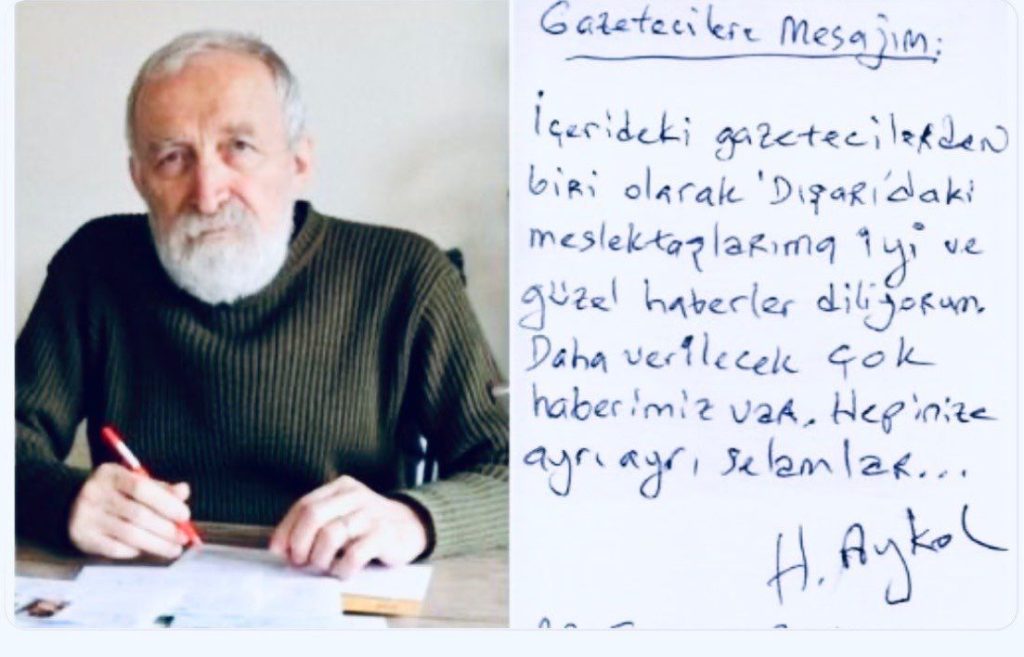 Gazetecilere Mesajım:
İçerideki gazetecilerden
biri olarak 'Dışarı'daki
meslektaşlarıma iyi ve
güzel haberler diliyorum.
Daha verilecek çok
haberimiz var. Hepinize
ayrı ayrı selamlar...
H. Aykol